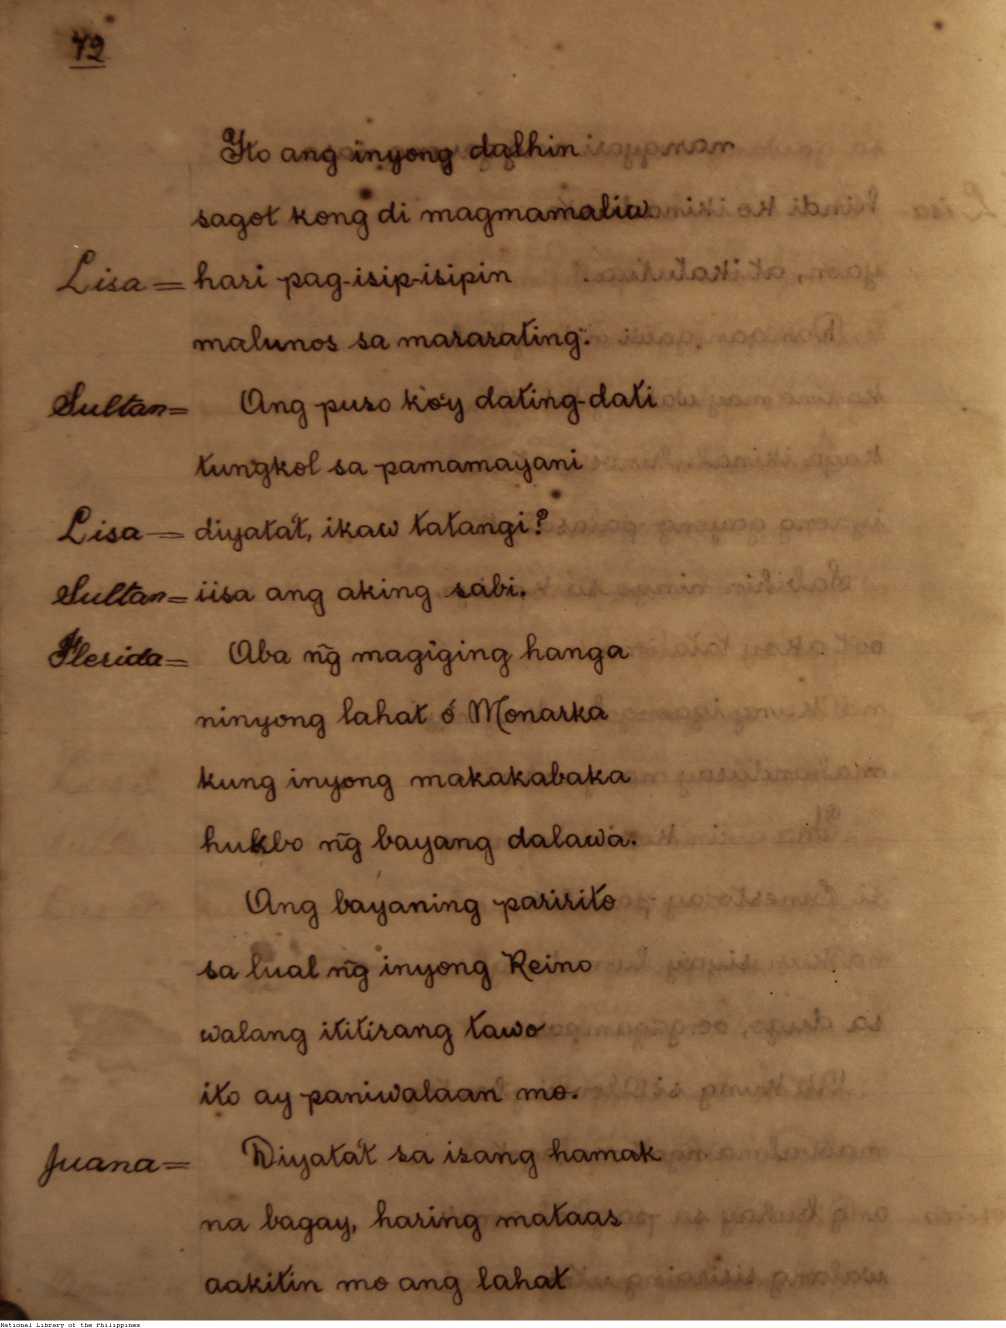 72
Yto ang inyong dalhin
sagot kong di magmamaliw
Lisa = hari pag-isip-isipin
malunos sa mararating.
Sultan = Ang puso ko'y dating-dati
tungkol sa pamamayani
Lisa = diyata't, ikaw tatangi?
Sultan = iisa ang aking sabi.
Flerida = Aba n͠g magiging hanga
ninyong lahat ó Monarka
kung inyong makakabaka
hukbo n͠g bayang dalawa.
Ang bayaning paririto
sa lual n͠g inyong Reino
walang ititirang tawo
ito ay paniwalaan mo.
Juana = Diyata't sa isang hamak
na bagay, haring mataas
aakitin mo ang lahat
National Library of the Philippines